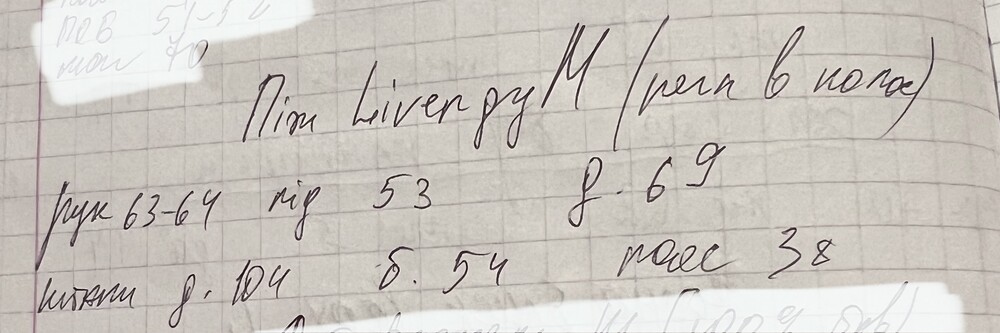 пов 51-52
70
Піж Livergy M (регл в полос)
рук 63-64 під 53 д. 69
штани д. 104 б. 54 пояс 38